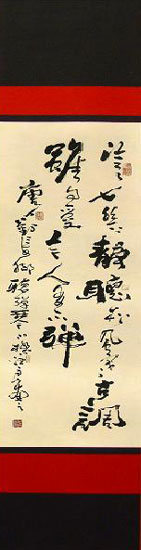 泠〻七絃上靜聽松風寒古調
雖自愛今人多不弹
唐劉長卿聽彈琴